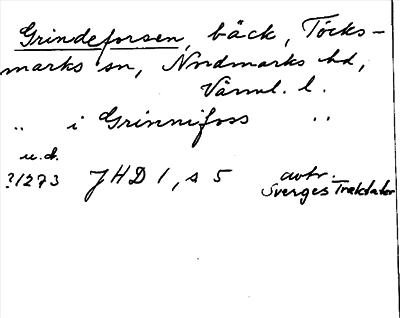 Grindeforsen, bäck, Töcks-
marks sn, Nordmarks hd,
Värml. l.
„ i Grinnifoss „
u.d.
?1273 JHD 1, s 5 avtr.
Sverges Traktater